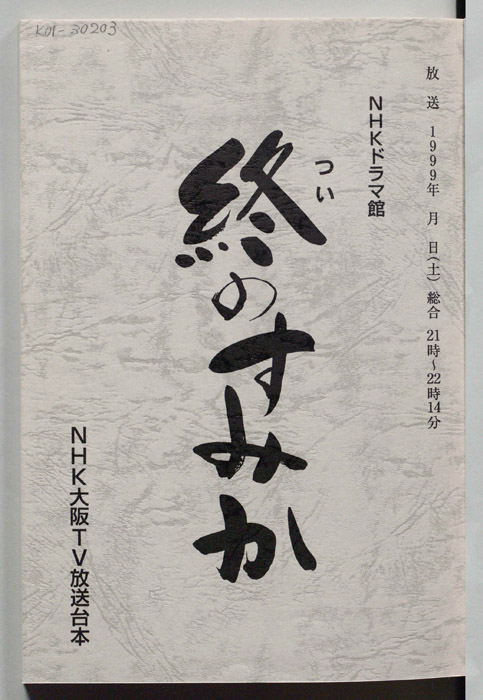 K01-30203
放送 1999年 月 日(土) 総合 21時~22時14分
NHKドラマ館
つい
終のすみか
NHK大阪TV放送台本